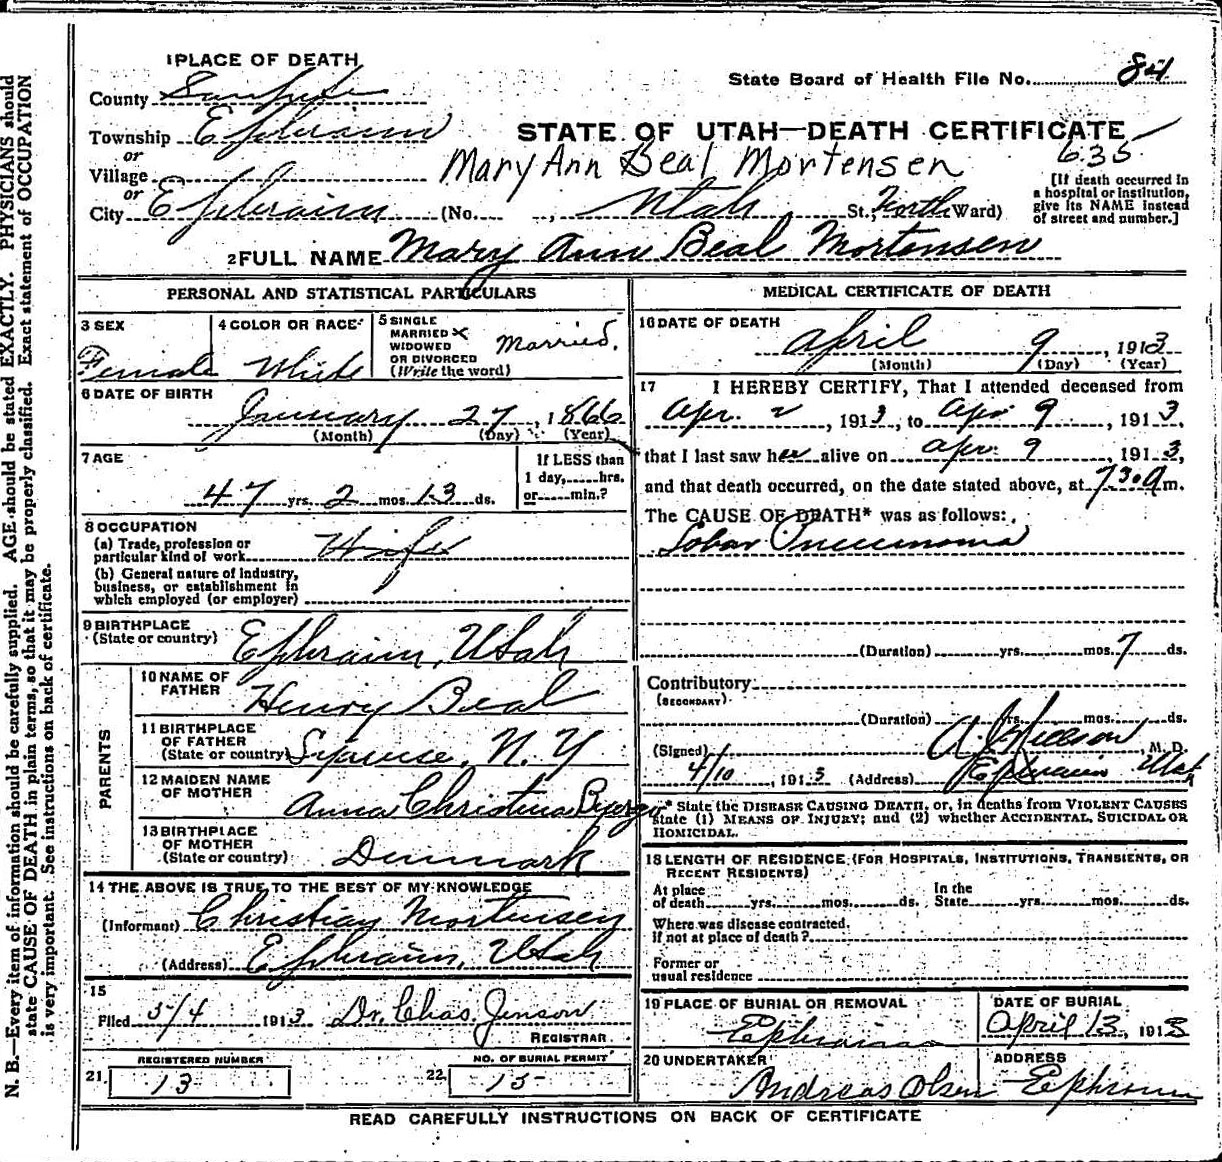 1 PLACE OF DEATH
State Board of Health File No. 84
County Sanpete
Township Ephraim
STATE OF UTAH—DEATH CERTIFICATE
or
Village
Mary Ann Beal Mortensen
635
or
City Ephraim (No. , Utah St., North Ward)
[If death occurred in
a hospital or institution,
give its NAME instead
of street and number.]
2 FULL NAME Mary Ann Beal Mortensen
PERSONAL AND STATISTICAL PARTICULARS
3 SEX
Female
4 COLOR OR RACE
White
5 SINGLE
MARRIED X
WIDOWED
OR DIVORCED
(Write the word)
Married.
6 DATE OF BIRTH
January 27, 1866
(Month) (Day) (Year)
7 AGE
47 yrs. 2 mos. 13 ds.
If LESS than
1 day, hrs.
or min.?
8 OCCUPATION
(a) Trade, profession or
particular kind of work Wife
(b) General nature of industry,
business, or establishment in
which employed (or employer)
9 BIRTHPLACE
(State or country) Ephraim, Utah
PARENTS
10 NAME OF
FATHER Henry Beal
11 BIRTHPLACE
OF FATHER
(State or country) Syracuse, N. Y
12 MAIDEN NAME
OF MOTHER
Anna Christina
13 BIRTHPLACE
OF MOTHER
(State or country) Denmark
14 THE ABOVE IS TRUE TO THE BEST OF MY KNOWLEDGE
(Informant) Christian Mortensen
(Address) Ephraim, Utah
15
Filed 5/4 1913 Dr. Chas. Jenson
REGISTRAR
REGISTERED NUMBER
21. 13
NO. OF BURIAL PERMIT
22. 15
MEDICAL CERTIFICATE OF DEATH
16 DATE OF DEATH
April 9, 1913
(Month) (Day) (Year)
17 I HEREBY CERTIFY, That I attended deceased from
Apr. 2, 1913, to Apr 9, 1913,
that I last saw her alive on Apr. 9, 1913,
and that death occurred, on the date stated above, at 7 30 a m.
The CAUSE OF DEATH* was as follows:
Lobar Pneumonia
(Duration) yrs. mos. 7 ds.
Contributory
(SECONDARY)
(Duration) yrs. mos. ds.
(Signed) , M. D.
4/10, 1913 (Address) Ephraim Utah
* State the DISEASE CAUSING DEATH, or, in deaths from VIOLENT CAUSES
state (1) MEANS OF INJURY; and (2) whether ACCIDENTAL, SUICIDAL OR
HOMICIDAL.
18 LENGTH OF RESIDENCE (FOR HOSPITALS, INSTITUTIONS, TRANSIENTS, OR
RECENT RESIDENTS)
At place
of death yrs. mos. ds.
In the
State yrs. mos. ds.
Where was disease contracted.
if not at place of death?
Former or
usual residence
19 PLACE OF BURIAL OR REMOVAL
Ephraim
DATE OF BURIAL
April 13, 1913
20 UNDERTAKER
Andreas Olsen
ADDRESS
Ephraim
READ CAREFULLY INSTRUCTIONS ON BACK OF CERTIFICATE
N. B.—Every item of information should be carefully supplied. AGE should be stated EXACTLY. PHYSICIANS should
state CAUSE OF DEATH in plain terms, so that it may be properly classified. Exact statement of OCCUPATION
is very important. See instructions on back of certificate.